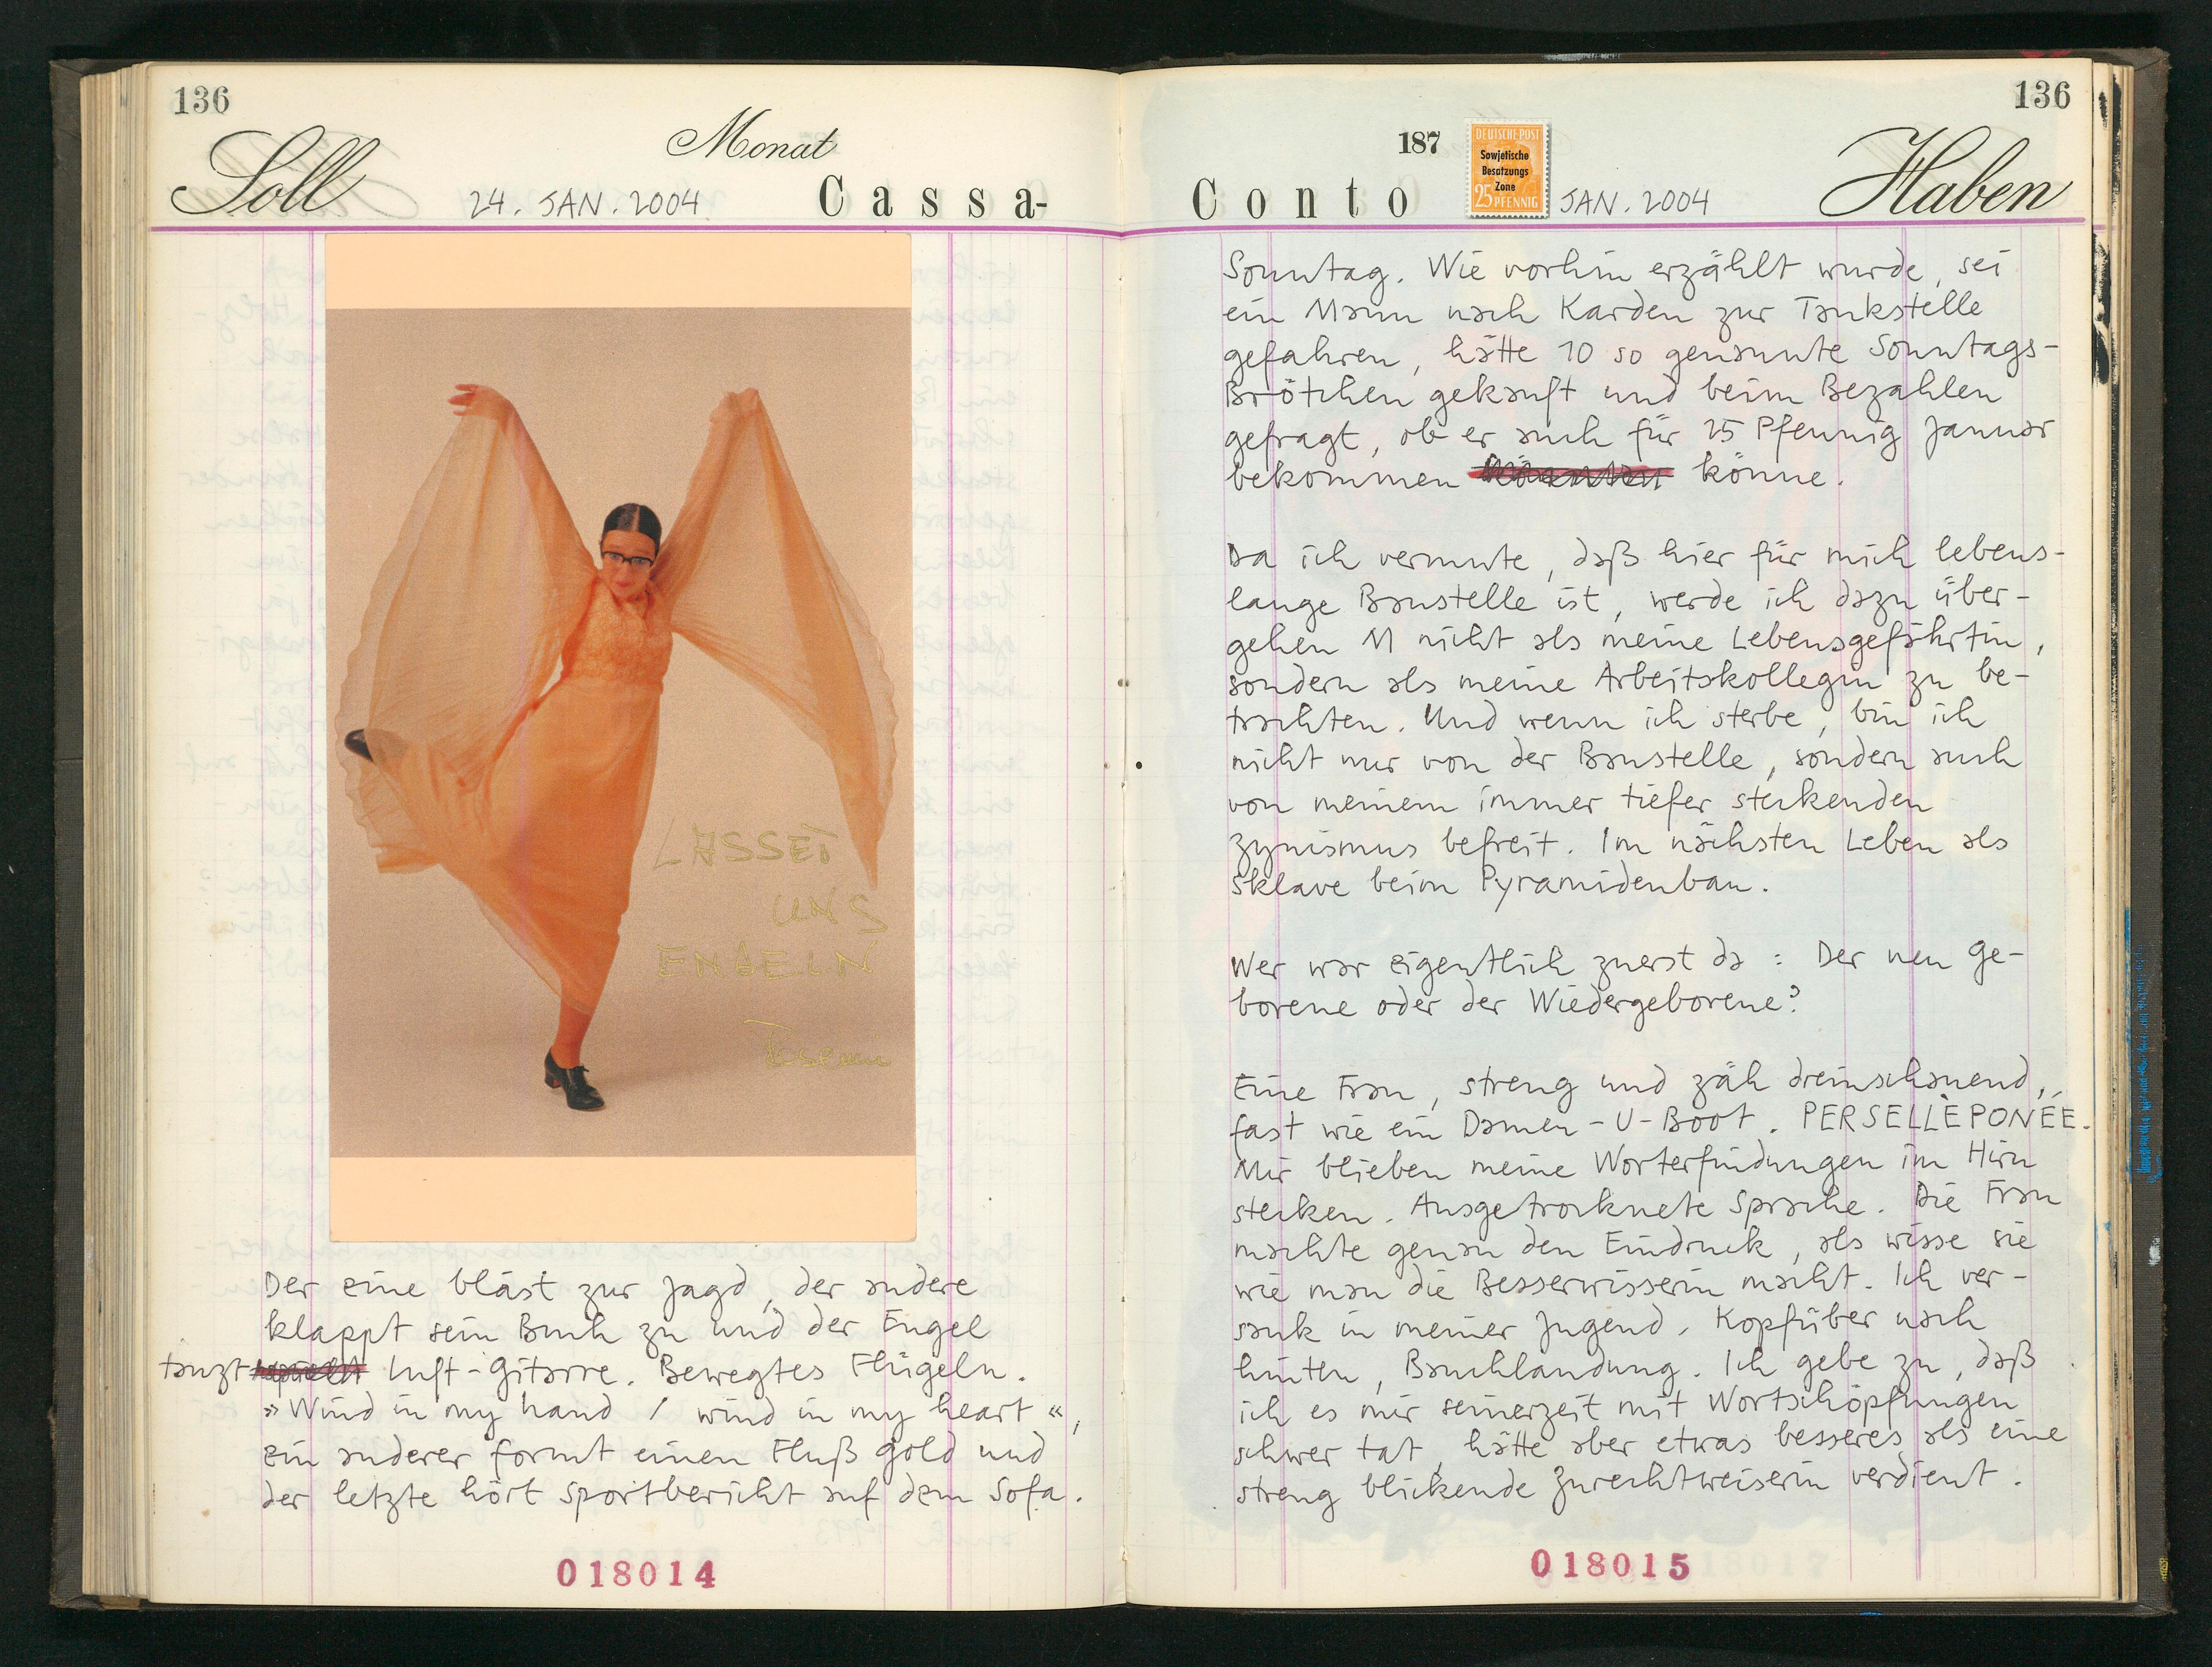 136
Soll
Monat
24. JAN. 2004
Cassa-
LASSET
UNS
ENGELN
Der eine bläst zur Jagd, der andere
klappt sein Buch zu und der Engel
tanzt Luft-Gitarre. Bewegtes Flügeln.
»Wind in my hand / wind in my heart«,
ein anderer formt einen Fluß Gold und
der letzte hört Sportbericht auf dem Sofa.
018014
136
187
Haben
Conto
DEUTSCHE POST
Sowjetische
Besatzungs
Zone
25 PFENNIG
JAN. 2004
Sonntag. Wie vorhin erzählt wurde, sei
ein Mann nach Karden zur Tankstelle
gefahren, hätte 10 so genannte Sonntags-
Brötchen gekauft und beim Bezahlen
gefragt, ob er auch für 25 Pfennig Januar
bekommen könne.
Da ich vermute, daß hier für mich lebens-
lange Baustelle ist, werde ich dazu über-
gehen M nicht als meine Lebensgefährtin,
sondern als meine Arbeitskollegin zu be-
trachten. Und wenn ich sterbe, bin ich
nicht nur von der Baustelle, sondern auch
von meinem immer tiefer steckenden
Zynismus befreit. Im nächsten Leben als
Sklave beim Pyramidenbau.
Wer war eigentlich zuerst da: Der neu ge-
borene oder der Wiedergeborene?
Eine Frau, streng und zäh dreinschauend,
fast wie ein Damen-U-Boot. PERSELLÈPONÉE.
Mir blieben meine Worterfindungen im Hirn
stecken. Ausgetrocknete Sprache. Die Frau
machte genau den Eindruck, als wisse sie
wie man die Besserwisserin macht. Ich ver-
sank in meiner Jugend, Kopfüber nach
hinten, Bauchlandung. Ich gebe zu, daß
ich es mir seinerzeit mit Wortschöpfungen
schwer tat, hätte aber etwas besseres als eine
streng blickende Zurechtweiserin verdient.
018015